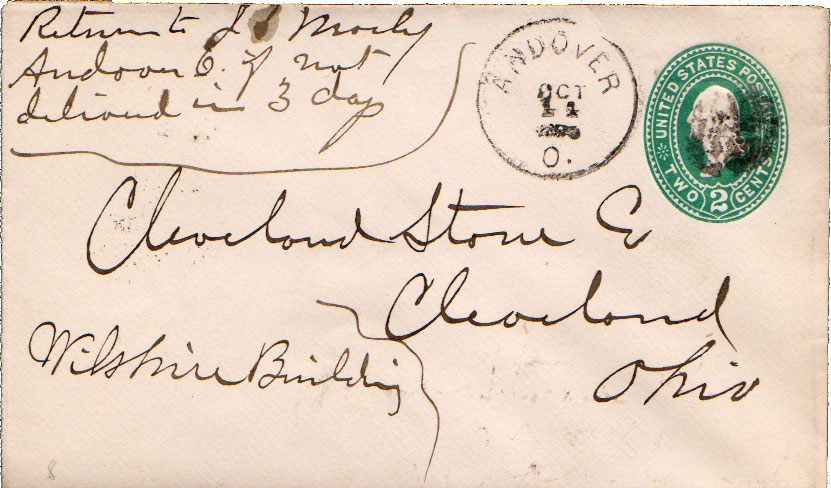 Return to J Morly
Andover O. if not
delivered in 3 days
ANDOVER
OCT
11
O.
UNITED STATES POSTAGE
TWO 2 CENTS
Cleveland Stone Co
Cleveland
Ohio
Wilshire Building